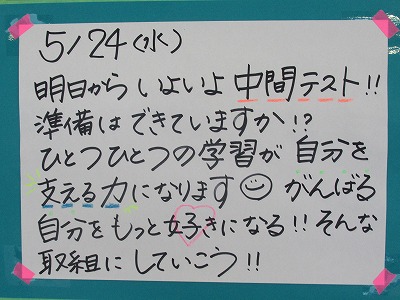 5/24(水)
明日から いよいよ 中間テスト!!
準備は できていますか!?
ひとつひとつの学習が 自分を
支える力になります☺ がんばる
自分をもっと好きになる!! そんな
取組に していこう!!